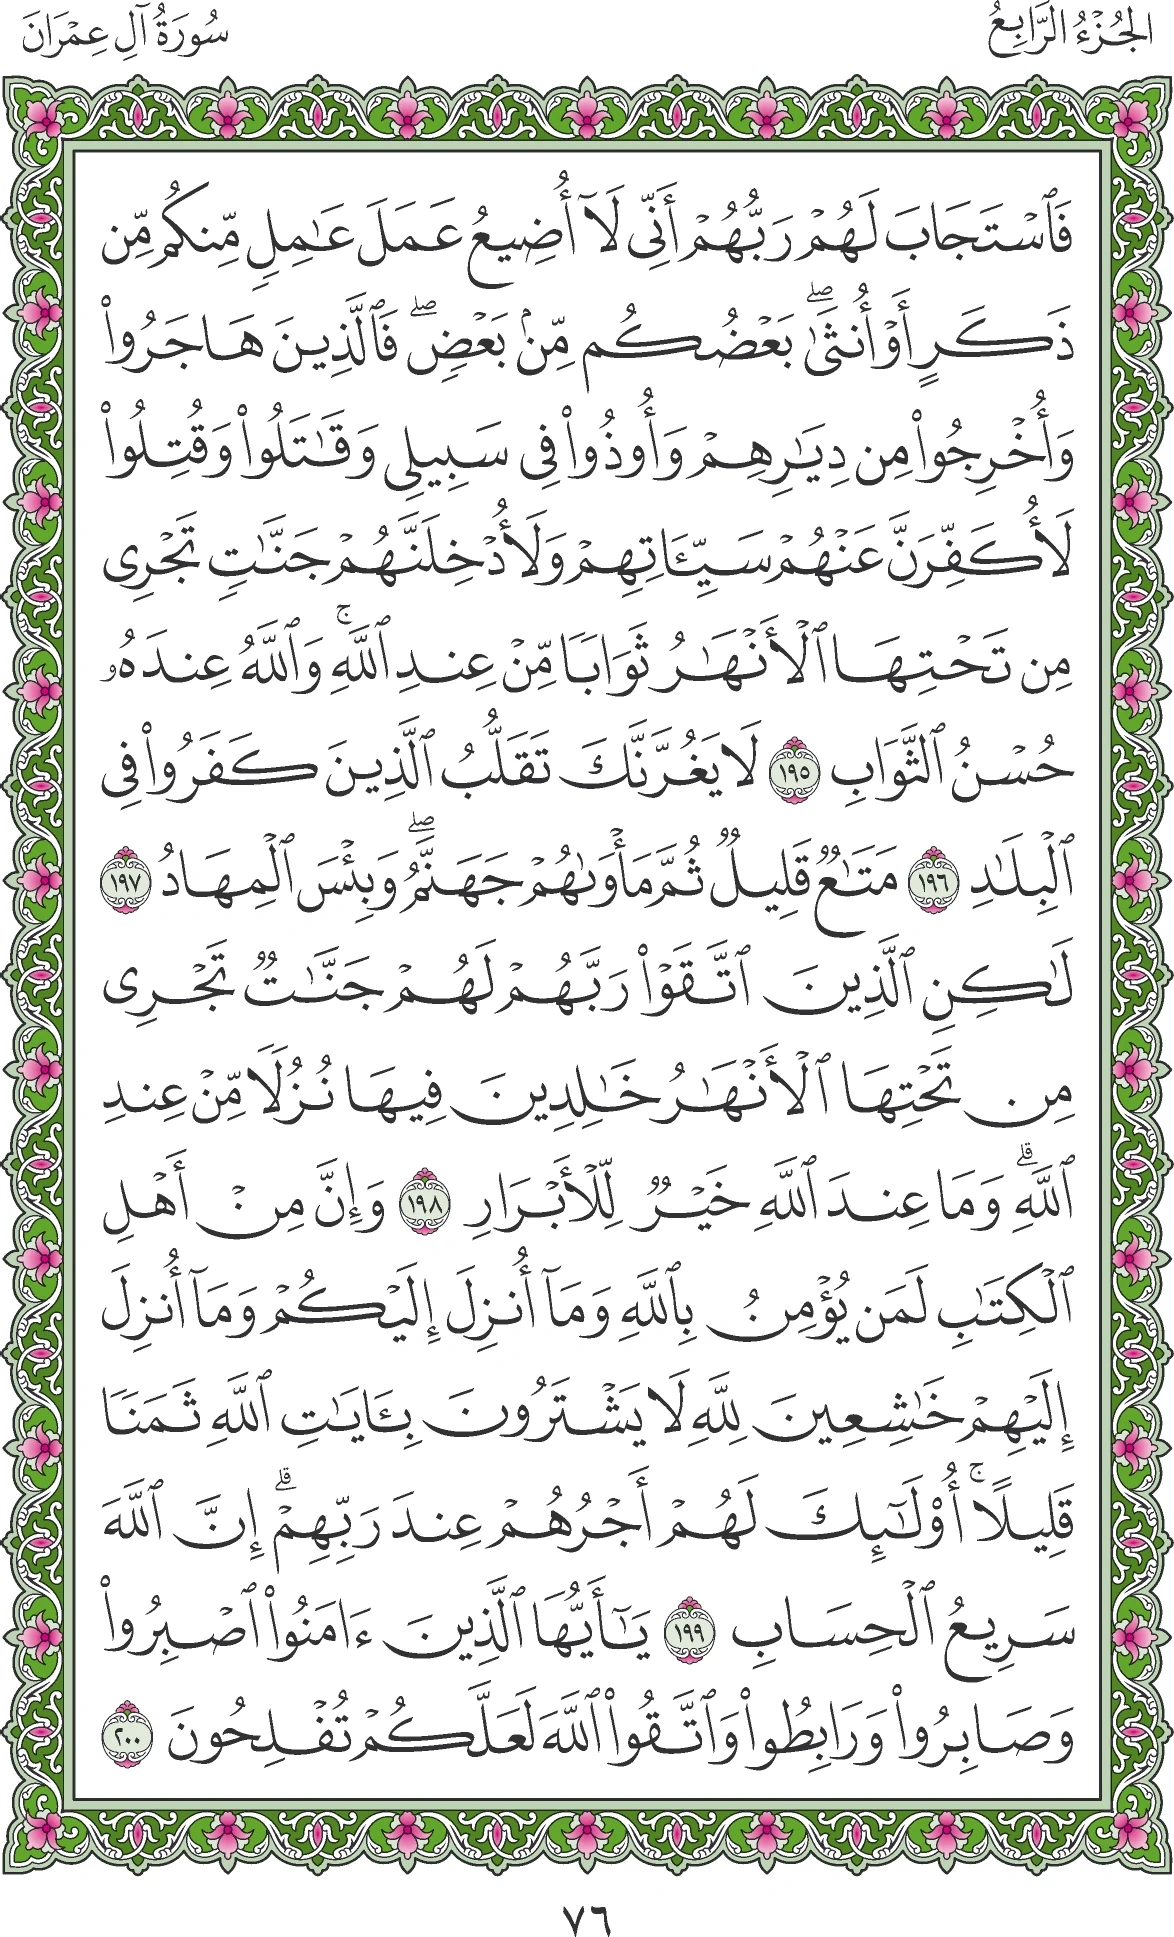 الجُزْءُ الرَّابِعُ
سُورَةُ آلِ عِمْرَانَ
فَٱسْتَجَابَ لَهُمْ رَبُّهُمْ أَنِّى لَآ أُضِيعُ عَمَلَ عَٰمِلٍ مِّنكُم مِّن
ذَكَرٍ أَوْ أُنثَىٰ ۖ بَعْضُكُم مِّنۢ بَعْضٍ ۖ فَٱلَّذِينَ هَاجَرُوا۟
وَأُخْرِجُوا۟ مِن دِيَٰرِهِمْ وَأُوذُوا۟ فِى سَبِيلِى وَقَٰتَلُوا۟ وَقُتِلُوا۟
لَأُكَفِّرَنَّ عَنْهُمْ سَيِّـَٔاتِهِمْ وَلَأُدْخِلَنَّهُمْ جَنَّٰتٍ تَجْرِى
مِن تَحْتِهَا ٱلْأَنْهَٰرُ ثَوَابًا مِّنْ عِندِ ٱللَّهِ ۚ وَٱللَّهُ عِندَهُۥ
حُسْنُ ٱلثَّوَابِ ١٩٥ لَا يَغُرَّنَّكَ تَقَلُّبُ ٱلَّذِينَ كَفَرُوا۟ فِى
ٱلْبِلَٰدِ ١٩٦ مَتَٰعٌ قَلِيلٌ ثُمَّ مَأْوَىٰهُمْ جَهَنَّمُ ۖ وَبِئْسَ ٱلْمِهَادُ ١٩٧
لَٰكِنِ ٱلَّذِينَ ٱتَّقَوْا۟ رَبَّهُمْ لَهُمْ جَنَّٰتٌ تَجْرِى
مِن تَحْتِهَا ٱلْأَنْهَٰرُ خَٰلِدِينَ فِيهَا نُزُلًا مِّنْ عِندِ
ٱللَّهِ ۗ وَمَا عِندَ ٱللَّهِ خَيْرٌ لِّلْأَبْرَارِ ١٩٨ وَإِنَّ مِنْ أَهْلِ
ٱلْكِتَٰبِ لَمَن يُؤْمِنُ بِٱللَّهِ وَمَآ أُنزِلَ إِلَيْكُمْ وَمَآ أُنزِلَ
إِلَيْهِمْ خَٰشِعِينَ لِلَّهِ لَا يَشْتَرُونَ بِـَٔايَٰتِ ٱللَّهِ ثَمَنًا
قَلِيلًا ۚ أُو۟لَٰٓئِكَ لَهُمْ أَجْرُهُمْ عِندَ رَبِّهِمْ ۗ إِنَّ ٱللَّهَ
سَرِيعُ ٱلْحِسَابِ ١٩٩ يَٰٓأَيُّهَا ٱلَّذِينَ ءَامَنُوا۟ ٱصْبِرُوا۟
وَصَابِرُوا۟ وَرَابِطُوا۟ وَٱتَّقُوا۟ ٱللَّهَ لَعَلَّكُمْ تُفْلِحُونَ ٢٠٠
٧٦